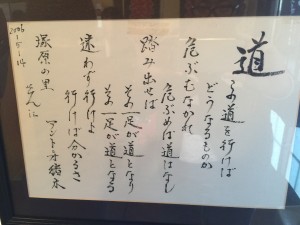 道
この道を行けば
どうなるものか
危ぶむなかれ
危ぶめば道はなし
踏み出せば
その一足が道となり
その一足が道となる
迷わず行けよ
行けば分かるさ
アントニオ猪木
塚原の里
さん江
2006-5-14